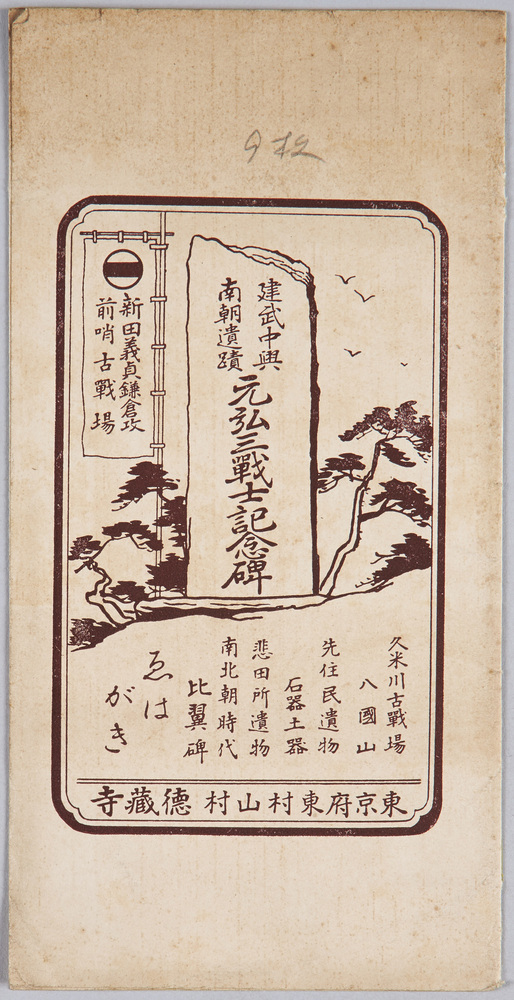 9枚
建武中興
南朝遺蹟
元弘三戰士記念碑
新田義貞鎌倉攻
前哨古戰場
久米川古戰場
八國山
先住民遺物
石器土器
悲田所遺物
南北朝時代
比翼碑
ゑはがき
東京府東村山村 德藏寺